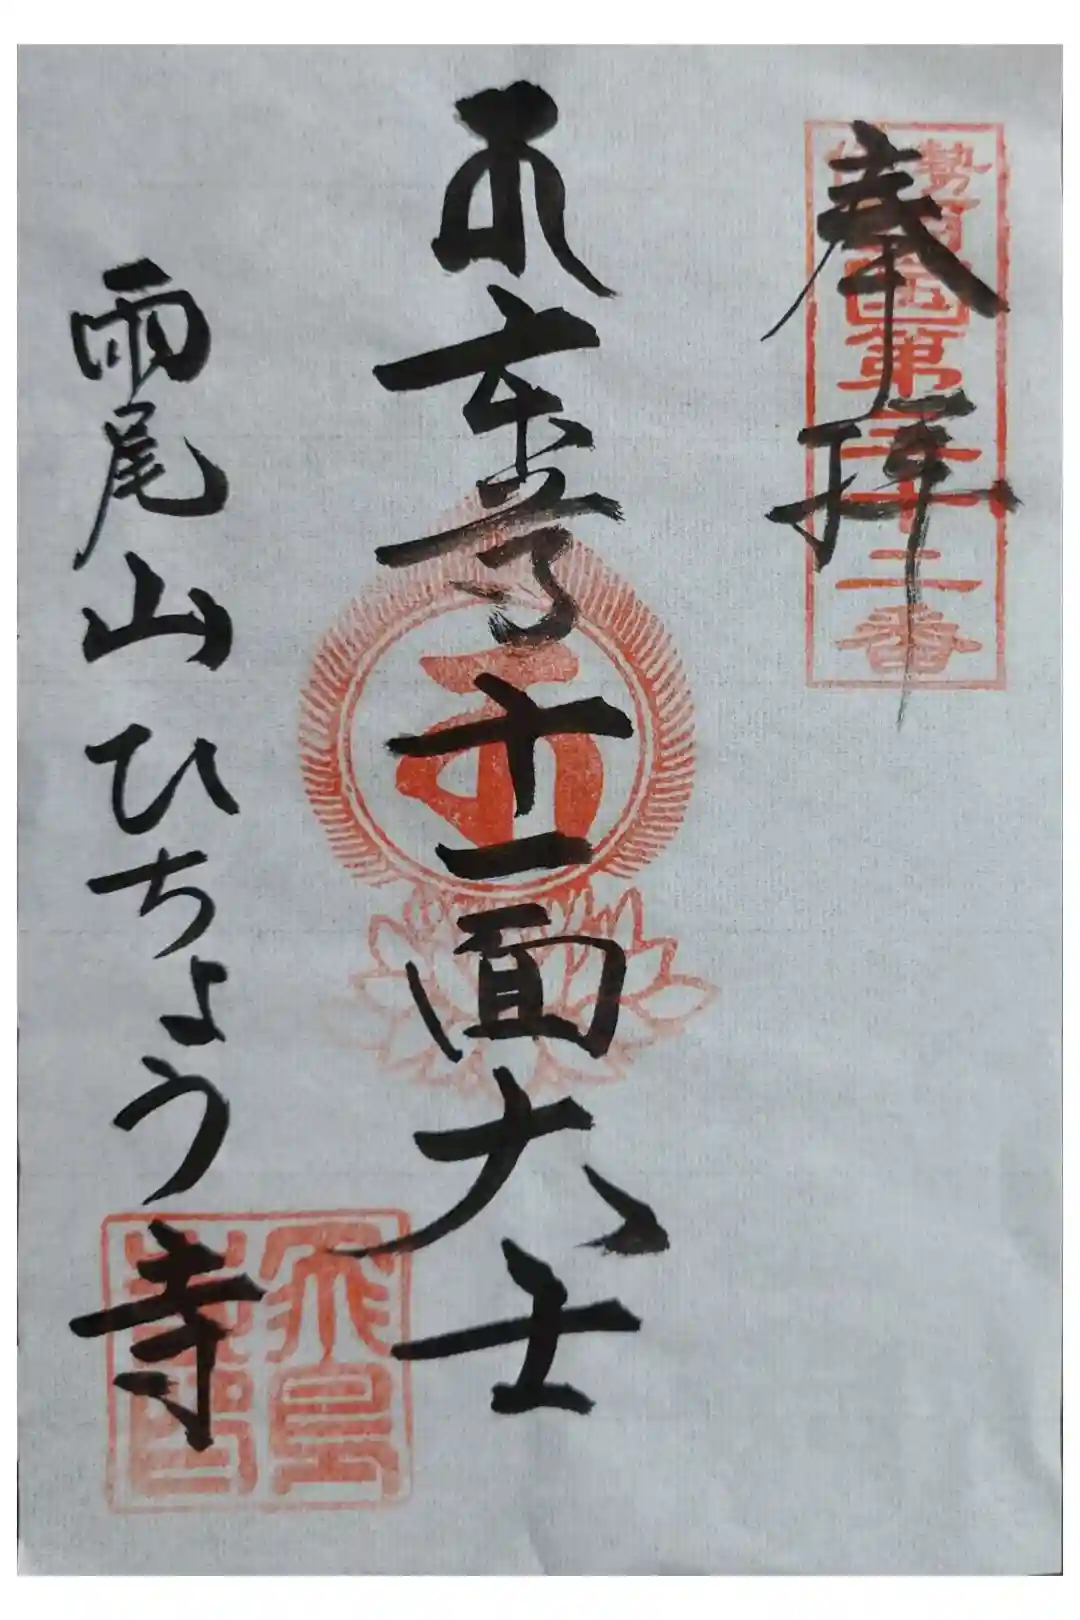 奉拝
勢西国第三十二番
本尊十一面大士
雨尾山ひちょう寺